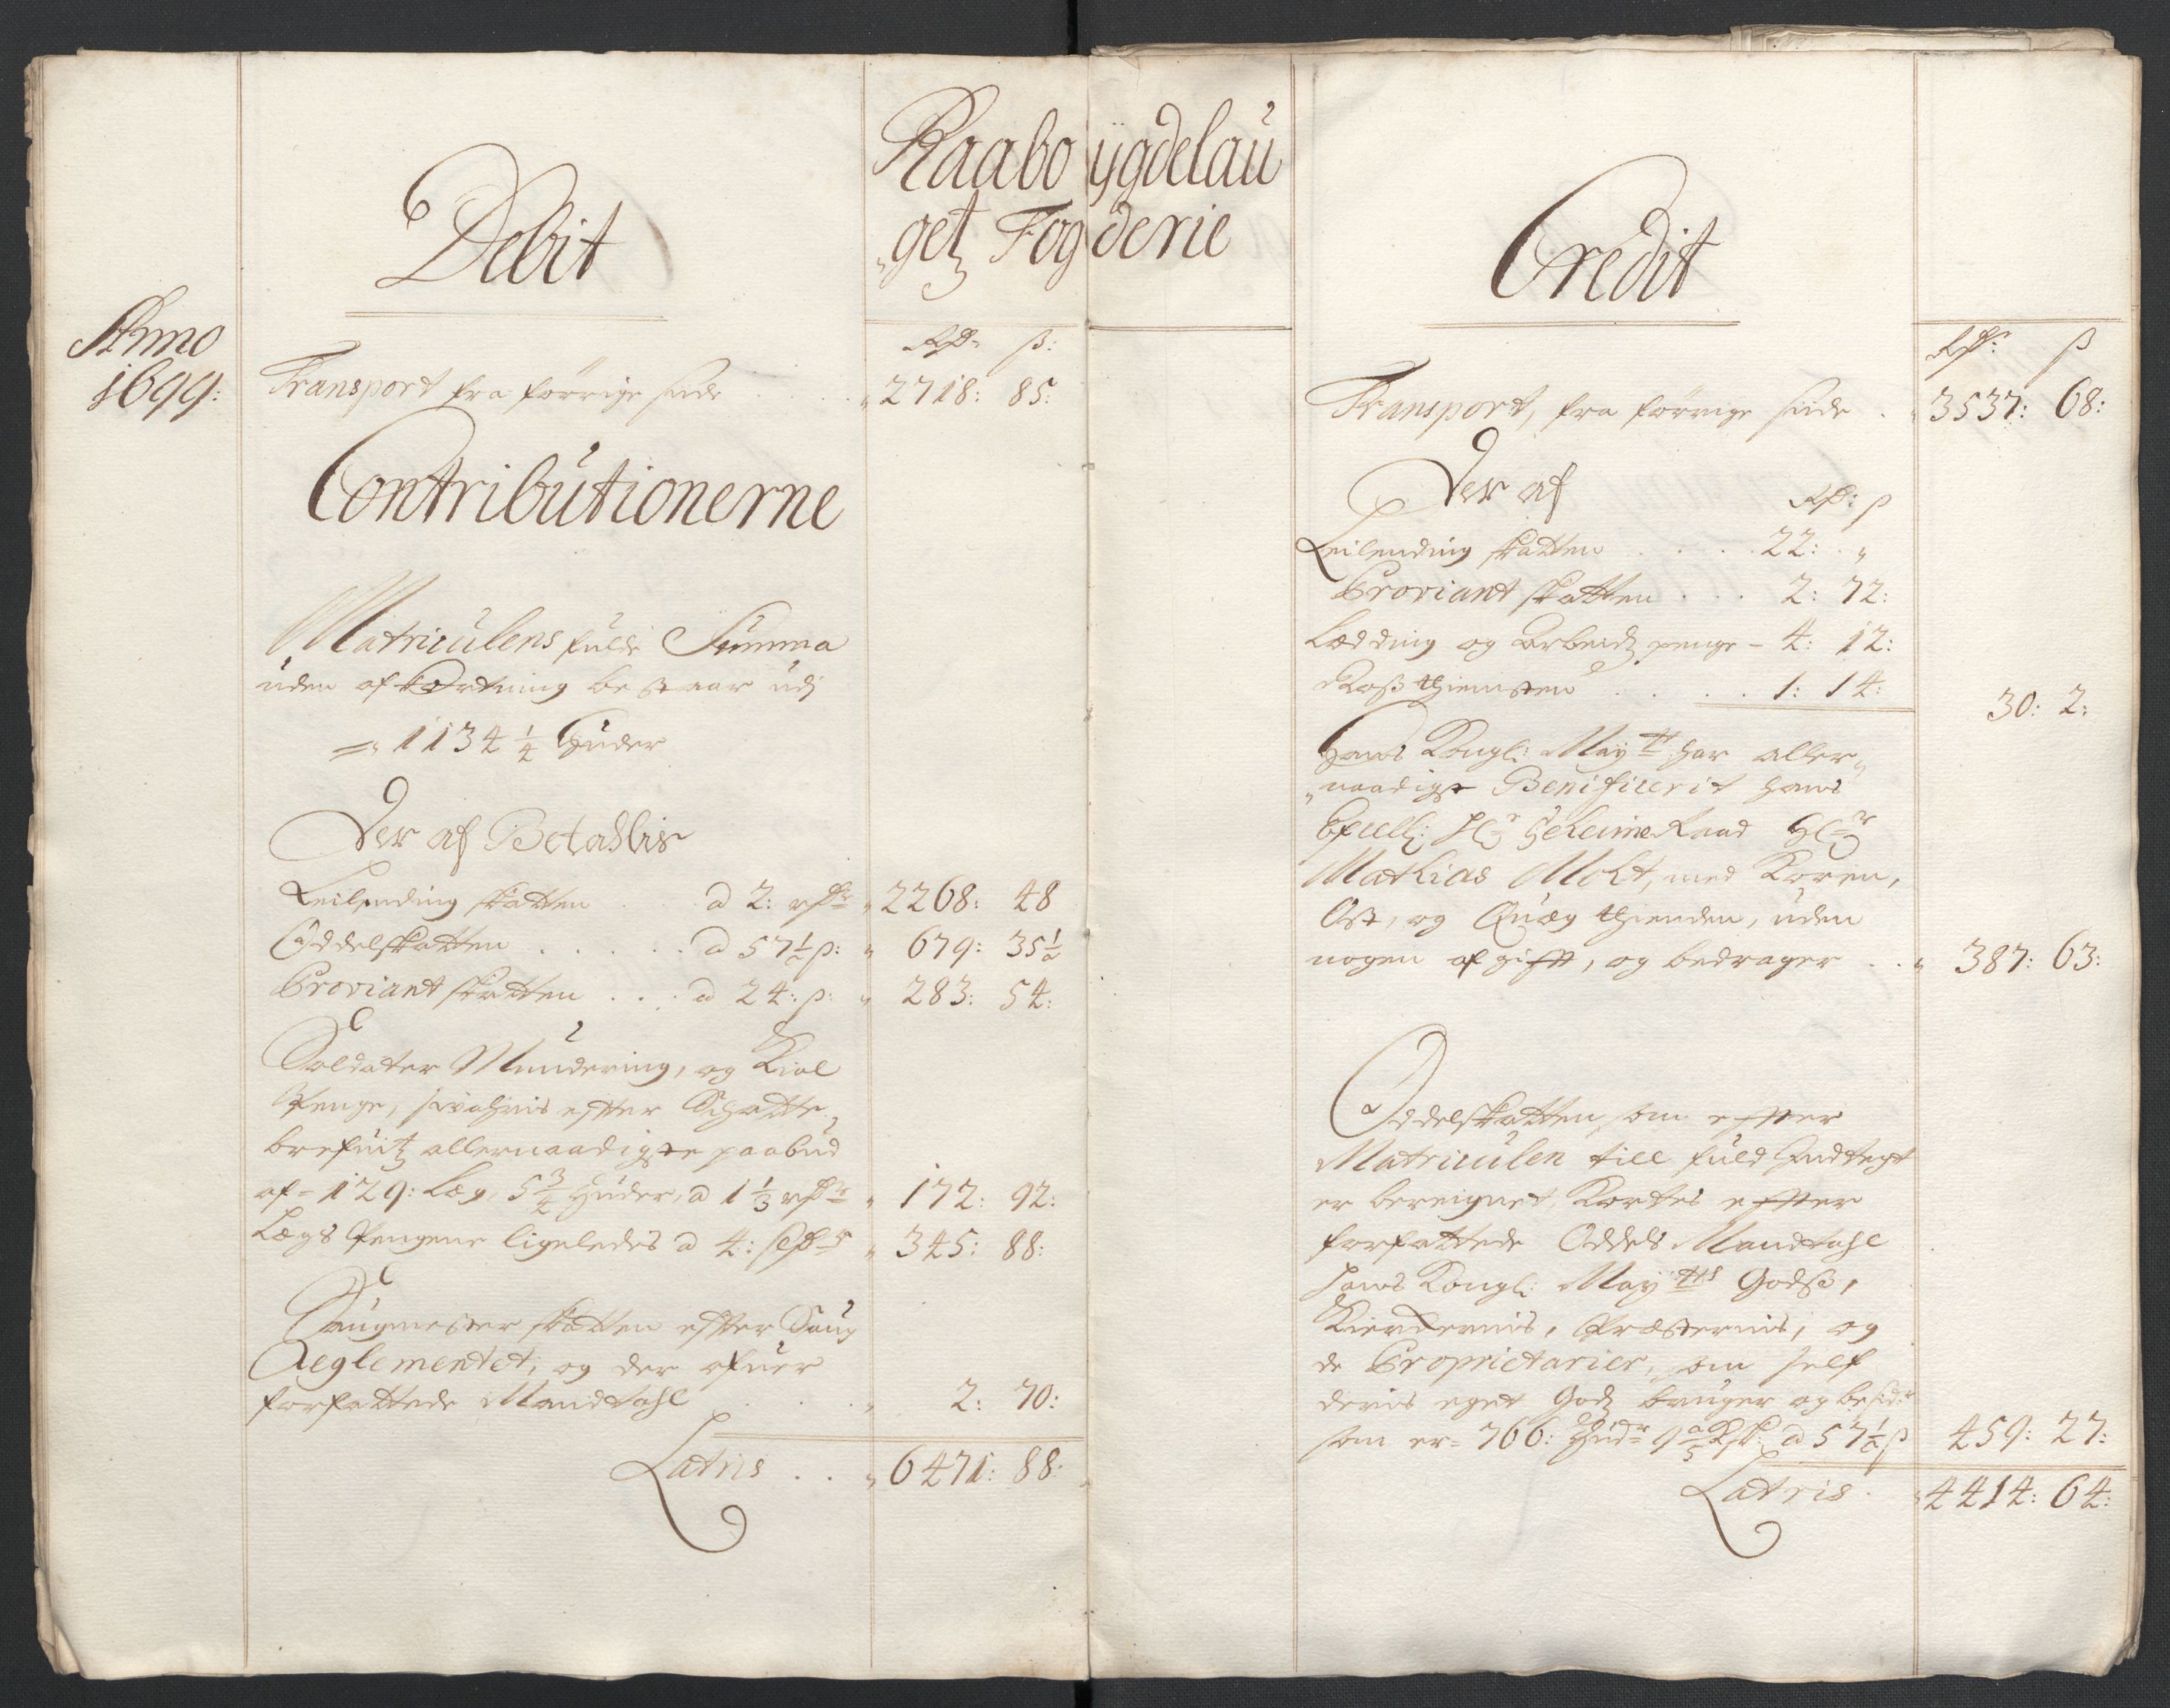 Raaboÿgdelau
getz Fogderie
Debit
Anno
1699:
Rdr ß:
Transport fra forrige side . . . . 2718: 85:
Contributionerne
Matriculens fulde Summa
uden afkortning bestaar udj
= 1134 1/4 huder
Der af Betahlis
Leilending skatten . . a 2: rdr 2268: 48
Oddelskatten . . . . . a 57 1/2 ß: 679: 35 1/2
Proviant skatten . . . a 24: ß: 283: 54:
Soldater Mundering, og Kiol
Penge, efter Schatte
brefuitz allernaadigste paabud
af 129: Læg, 5 3/4 huder, a 1 1/3 rdr 172: 92:
Lægs Pengene ligeledes a 4: 345: 88:
Saugmester skatten efter Saug
Reglementet, og der ofuer
forfattede Mandtahl . . . 2: 70:
Latris . . 6471: 88:
Credit
Rdr: ß
Transport, fra forrige side . 3537: 68:
Der af
Rdr: ß
Leilending skatten . . . . 22: "
Proviant skatten . . . 2: 72:
Lædding og Arbeidz penge - 4: 12:
Roß thienisten . . . . 1: 14:
30: 2:
Hans Kongl: Maytt har aller
naadigst Benificerit hans
Excell: Hr Geheime Raad Hr
Mathias Moht, med Koren,
Ost, og Quæg thienden, uden
nogen afgifft, og bedrager . . 387: 63:
Oddelskatten, som effter
Matriculen till fuld
er bereignet, Kortes effter
forfattede Oddels Mandtahl
hans Kongl: Maytts Godß,
Kierckernis, Præsternis, og
de Proprietarier, som self
deris eget Godz bruger og besidr
som er 766: hudr 9 a 57 1/2 ß 459: 27:
Latris . 4414: 64: